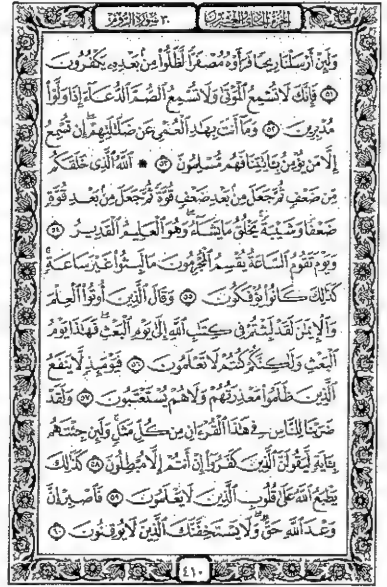 الجزء الحادي والعشرون
٣٠ سورة الروم
وَلَئِنْ أَرْسَلْنَا رِيحًا فَرَأَوْهُ مُصْفَرًّا لَّظَلُّوا۟ مِنۢ بَعْدِهِۦ يَكْفُرُونَ
٥١ فَإِنَّكَ لَا تُسْمِعُ ٱلْمَوْتَىٰ وَلَا تُسْمِعُ ٱلصُّمَّ ٱلدُّعَآءَ إِذَا وَلَّوْا۟
مُدْبِرِينَ ٥٢ وَمَآ أَنتَ بِهَٰدِ ٱلْعُمْىِ عَن ضَلَٰلَتِهِمْ ۖ إِن تُسْمِعُ
إِلَّا مَن يُؤْمِنُ بِـَٔايَٰتِنَا فَهُم مُّسْلِمُونَ ٥٣ * ٱللَّهُ ٱلَّذِى خَلَقَكُم
مِّن ضَعْفٍ ثُمَّ جَعَلَ مِنۢ بَعْدِ ضَعْفٍ قُوَّةً ثُمَّ جَعَلَ مِنۢ بَعْدِ قُوَّةٍ
ضَعْفًا وَشَيْبَةً ۚ يَخْلُقُ مَا يَشَآءُ ۖ وَهُوَ ٱلْعَلِيمُ ٱلْقَدِيرُ ٥٤
وَيَوْمَ تَقُومُ ٱلسَّاعَةُ يُقْسِمُ ٱلْمُجْرِمُونَ مَا لَبِثُوا۟ غَيْرَ سَاعَةٍ ۚ
كَذَٰلِكَ كَانُوا۟ يُؤْفَكُونَ ٥٥ وَقَالَ ٱلَّذِينَ أُوتُوا۟ ٱلْعِلْمَ
وَٱلْإِيمَٰنَ لَقَدْ لَبِثْتُمْ فِى كِتَٰبِ ٱللَّهِ إِلَىٰ يَوْمِ ٱلْبَعْثِ ۖ فَهَٰذَا يَوْمُ
ٱلْبَعْثِ وَلَٰكِنَّكُمْ كُنتُمْ لَا تَعْلَمُونَ ٥٦ فَيَوْمَئِذٍ لَّا يَنفَعُ
ٱلَّذِينَ ظَلَمُوا۟ مَعْذِرَتُهُمْ وَلَا هُمْ يُسْتَعْتَبُونَ ٥٧ وَلَقَدْ
ضَرَبْنَا لِلنَّاسِ فِى هَٰذَا ٱلْقُرْءَانِ مِن كُلِّ مَثَلٍ ۚ وَلَئِن جِئْتَهُم
بِـَٔايَةٍ لَّيَقُولَنَّ ٱلَّذِينَ كَفَرُوٓا۟ إِنْ أَنتُمْ إِلَّا مُبْطِلُونَ ٥٨ كَذَٰلِكَ
يَطْبَعُ ٱللَّهُ عَلَىٰ قُلُوبِ ٱلَّذِينَ لَا يَعْلَمُونَ ٥٩ فَٱصْبِرْ إِنَّ
وَعْدَ ٱللَّهِ حَقٌّ ۖ وَلَا يَسْتَخِفَّنَّكَ ٱلَّذِينَ لَا يُوقِنُونَ ٦٠
٤١٠